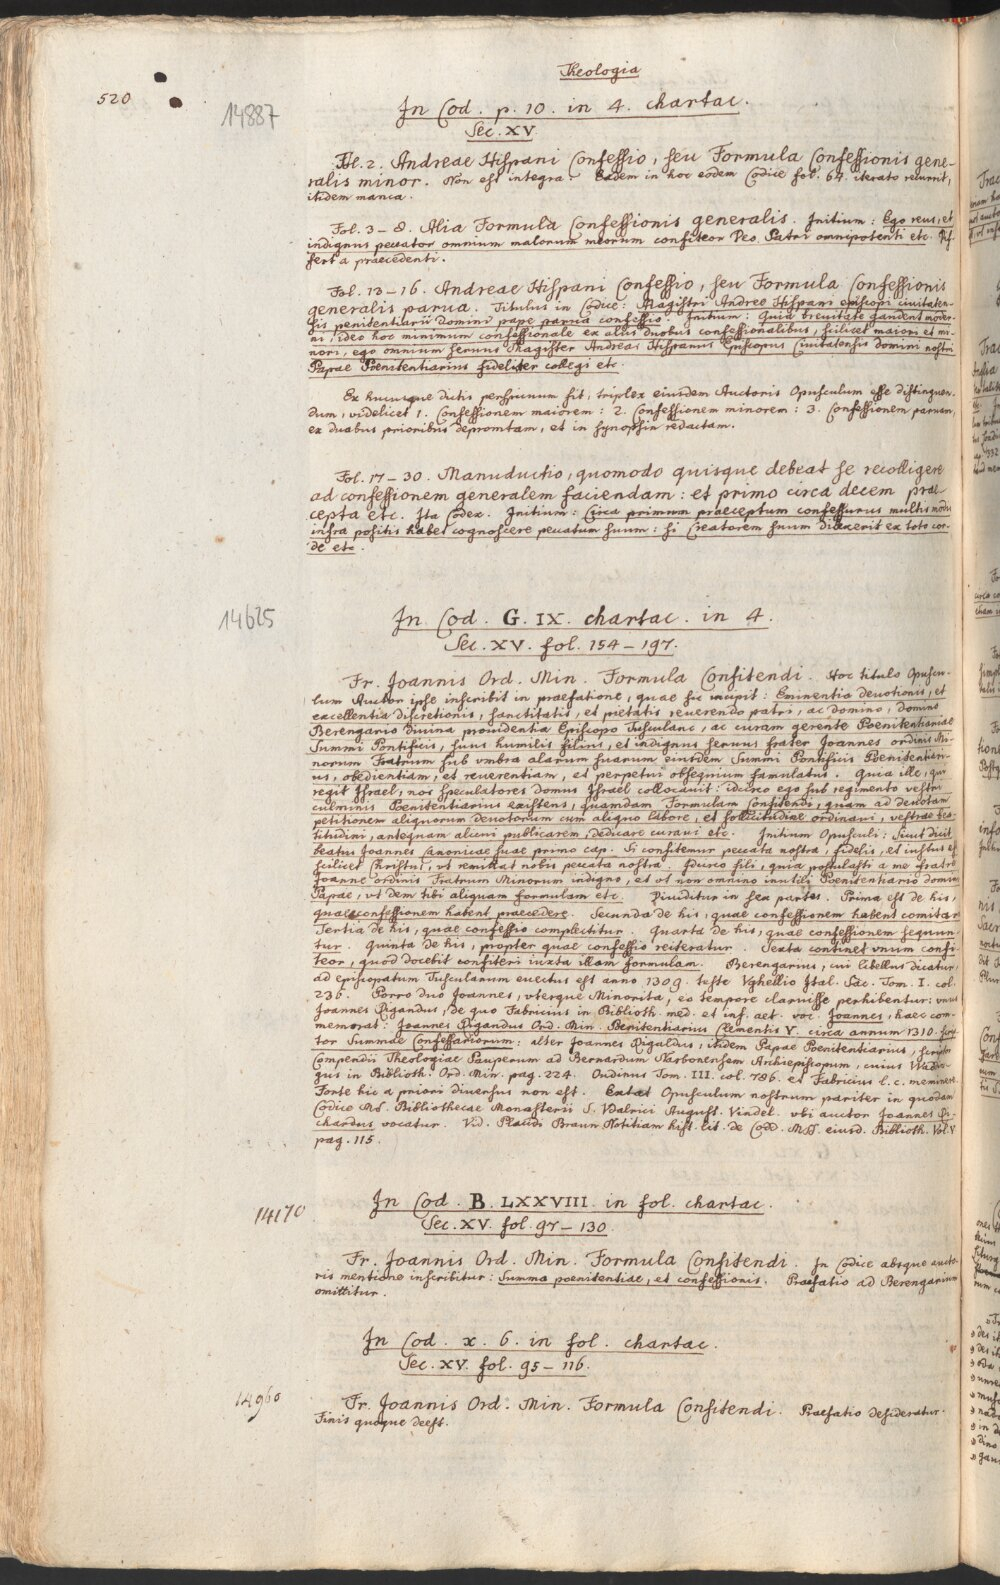 Theologia
520
14887
In Cod. p. 10. in 4. chartac.
Sec. XV
Fol. 2. Andreae Hispani Confessio, seu Formula Confessionis gene-
ralis minor. Non est integra. Eadem in hoc eodem Codice fol. 64. iterato recurrit,
itidem manca.
Fol. 3-8. Alia Formula Confessionis generalis. Initium: Ego reus, et
indignus peccator omnium malorum meorum confiteor Deo Patri omnipotenti etc. Dif-
fert a praecedenti.
Fol. 13-16. Andreae Hispani Confessio, seu Formula Confessionis
generalis parua. Titulus in Codice: Magistri Andree Hispani episcopi ciuitaten-
sis penitentiarii Domini pape parua confessio. Initium: Quia breuitate gaudent moder-
ni, ideo hoc minimum confessionale ex aliis duobus confessionalibus, scilicet maiori et mi-
nori, ego omnium seruus Magister Andreas Hispanus Episcopus Ciuitatensis domini nostri
Papae Poenitentiarius fideliter collegi etc.
Ex hucusque dictis perspicuum fit, triplex eiusdem Auctoris Opusculum esse distinguen-
dum, videlicet 1. Confessionem maiorem: 2. Confessionem minorem: 3. Confessionem paruam,
ex duabus prioribus depromtam, et in synopsin redactam.
Fol. 17-30. Manuductio, quomodo quisque debeat se recolligere
ad confessionem generalem faciendam: et primo circa decem prae-
cepta etc. Ita Codex. Initium: Circa primum praeceptum confessurus multis modis
infra positis habet cognoscere peccatum suum: si Creatorem suum dilexerit ex toto cor-
de etc.
14625
In Cod. G. IX. chartac. in 4.
Sec. XV. fol. 154-197.
Fr. Joannis Ord. Min. Formula Confitendi. Hoc titulo Opuscu-
lum Auctor ipse inscribit in praefatione, quae sic incipit: Eminentia deuotionis, et
excellentia discretionis, sanctitatis, et pietatis reuerendo patri, ac domino, domino
Berengario diuina prouidentia Episcopo Tusculano, ac curam gerente Poenitentiariae
Summi Pontificis, suus humilis filius, et indignus seruus frater Joannes ordinis Mi-
norum Fratrum sub vmbra alarum suarum eiusdem Summi Pontificis Poenitentiari-
us, obedientiam, et reuerentiam, et perpetui obsequium famulatus. Quia ille, qui
regit Israel, nos speculatores domus Israel collocauit: idcirco ego sub regimento vestri
culminis Poenitentiarius existens, quamdam Formulam Confitendi, quam ad deuotam
petitionem aliquorum deuotorum cum aliquo labore, et sollicitudine ordinaui, vestrae bea-
titudini, antequam alicui publicarem, dedicare curaui etc. Initium Opusculi: Sicut dicit
beatus Joannes Canonicae suae primo cap. Si confitemur peccata nostra, fidelis, et iustus est
scilicet Christus, vt remittat nobis peccata nostra. Idcirco fili, quia postulasti a me fratre
Joanne ordinis Fratrum Minorum indigno, et vt non omnino inutili Poenitentiario domini
Papae, vt dem tibi aliquam formulam etc. Diuiditur in sex partes. Prima est de his,
quae confessionem habent praecedere. Secunda de his, quae confessionem habent comitari
Tertia de his, quae confessio complectitur. Quarta de his, quae confessionem sequun-
tur. Quinta de his, propter quae confessio reiteratur. Sexta continet vnum confi-
teor, quod docebit confiteri iuxta illam formulam. Berengarius, cui libellus dicatur,
ad episcopatum Tusculanum euectus est anno 1309. teste Vghellio Ital. Sac. Tom. I. col.
236. Porro duo Joannes, vterque Minorita, eo tempore claruisse perhibentur: vnus
Joannes Rigandus, de quo Fabricius in Biblioth. med. et inf. aet. voc. Joannes, haec com-
memorat: Joannes Rigandus Ord. Min. Penitentiarius Clementis V. circa annum 1310. scrip-
tor Summae Confessariorum: alter Joannes Rigaldus, itidem Papae Poenitentiarius, scriptor
Compendii Theologiae Pauperum ad Bernardum Narbonensem Archiepiscopum, cuius Wadin-
gus in Biblioth. Ord. Min. pag. 224. Oudinus Tom. III. col. 786. et Fabricius l. c. meminere.
Forte hic a priori diuersus non est. Extat Opusculum nostrum pariter in quodam
Codice MS. Bibliothecae Monasterii S. Vdalrici August. Vindel. vbi auctor Joannes Ri-
chardus vocatur. Vid. Placidi Braun Notitiam hist. lit. de Codd. MSS. eiusd. Biblioth. Vol. V
pag. 115.
14170
In Cod. B. LXXVIII. in fol. chartac.
Sec. XV. fol. 97-130.
Fr. Joannis Ord. Min. Formula Confitendi. In Codice absque aucto-
ris mentione inscribitur: Summa poenitentiae, et confessionis. Praefatio ad Berengarium
omittitur.
In Cod. x. 6. in fol. chartac.
Sec. XV. fol. 95-116.
14960
Fr. Joannis Ord. Min. Formula Confitendi. Praefatio desideratur.
Finis quoque deest.